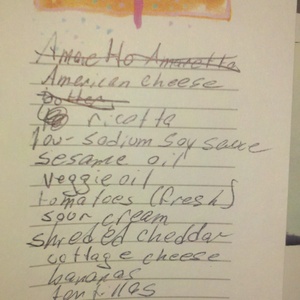 Amaretto Amaretto
American cheese
butter
ricotta
low-sodium soy sauce
sesame oil
veggie oil
tomatoes (fresh)
sour cream
shreded cheddar
cottage cheese
bananas
tortillas